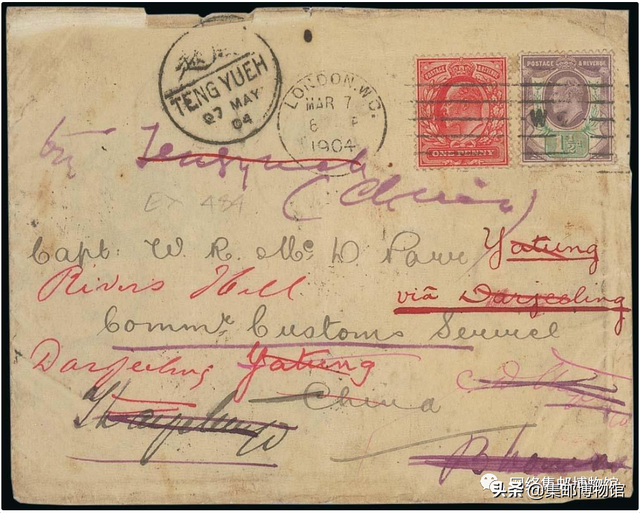 TENG YUEH
27 MAY
04
LONDON. W.C.
MAR 7
1904
POSTAGE & REVENUE
ONE PENNY
POSTAGE & REVENUE
1½d
Tengyueh
(China)
EX 484
Capt. W. R. Mc D Parr
Yatung
Rivers Hill
viâ Darjeeling
Commr Customs Service
Darjeeling Yatung
China
网络集邮博物馆
头条@集邮博物馆